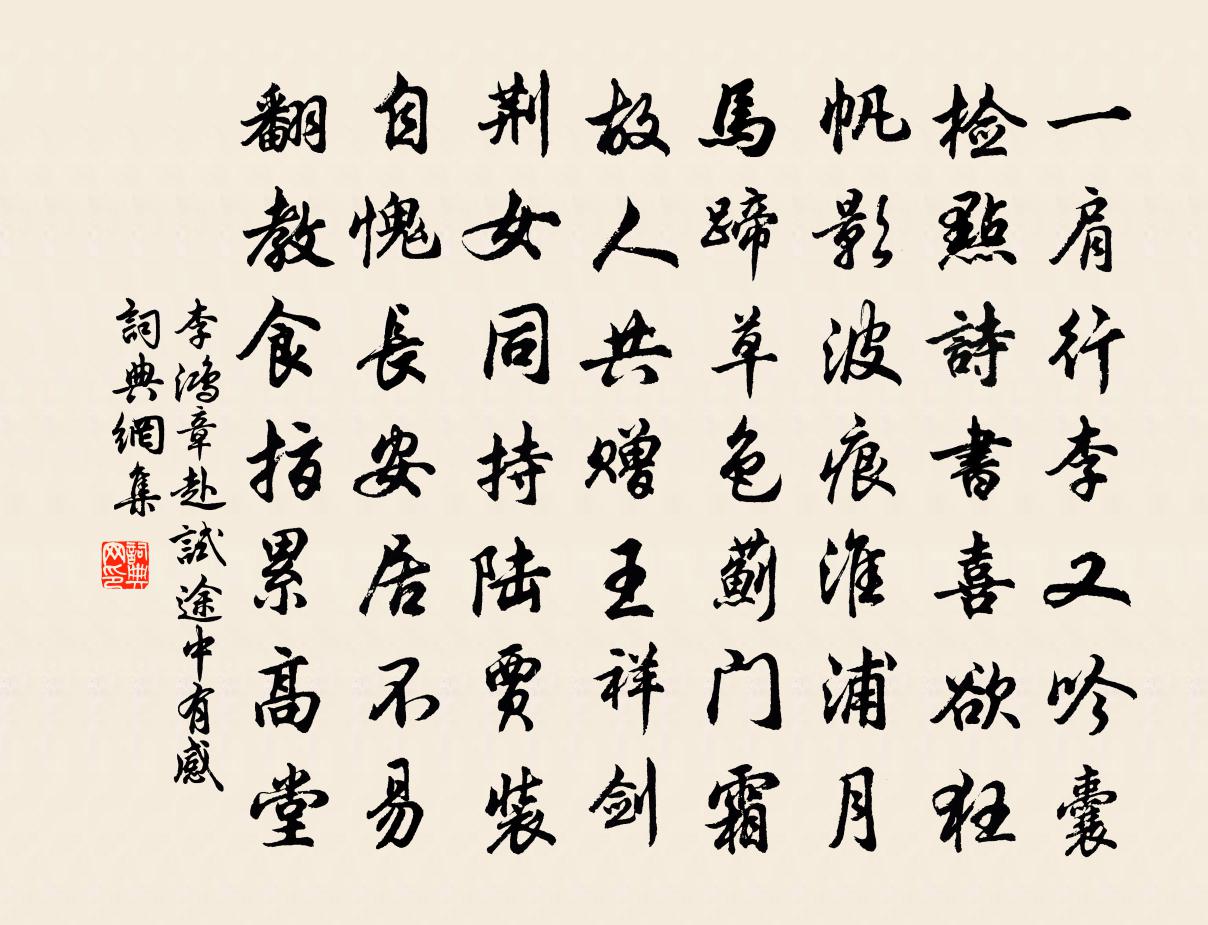 一肩行李又吟囊
检點詩書喜欲狂
帆影波痕淮浦月
馬蹄草色薊门霜
故人共赠王祥剑
荆女同持陆賈裝
自愧長安居不易
翻教食指累高堂
李鴻章赴試途中有感
詞典網集
詞典网印